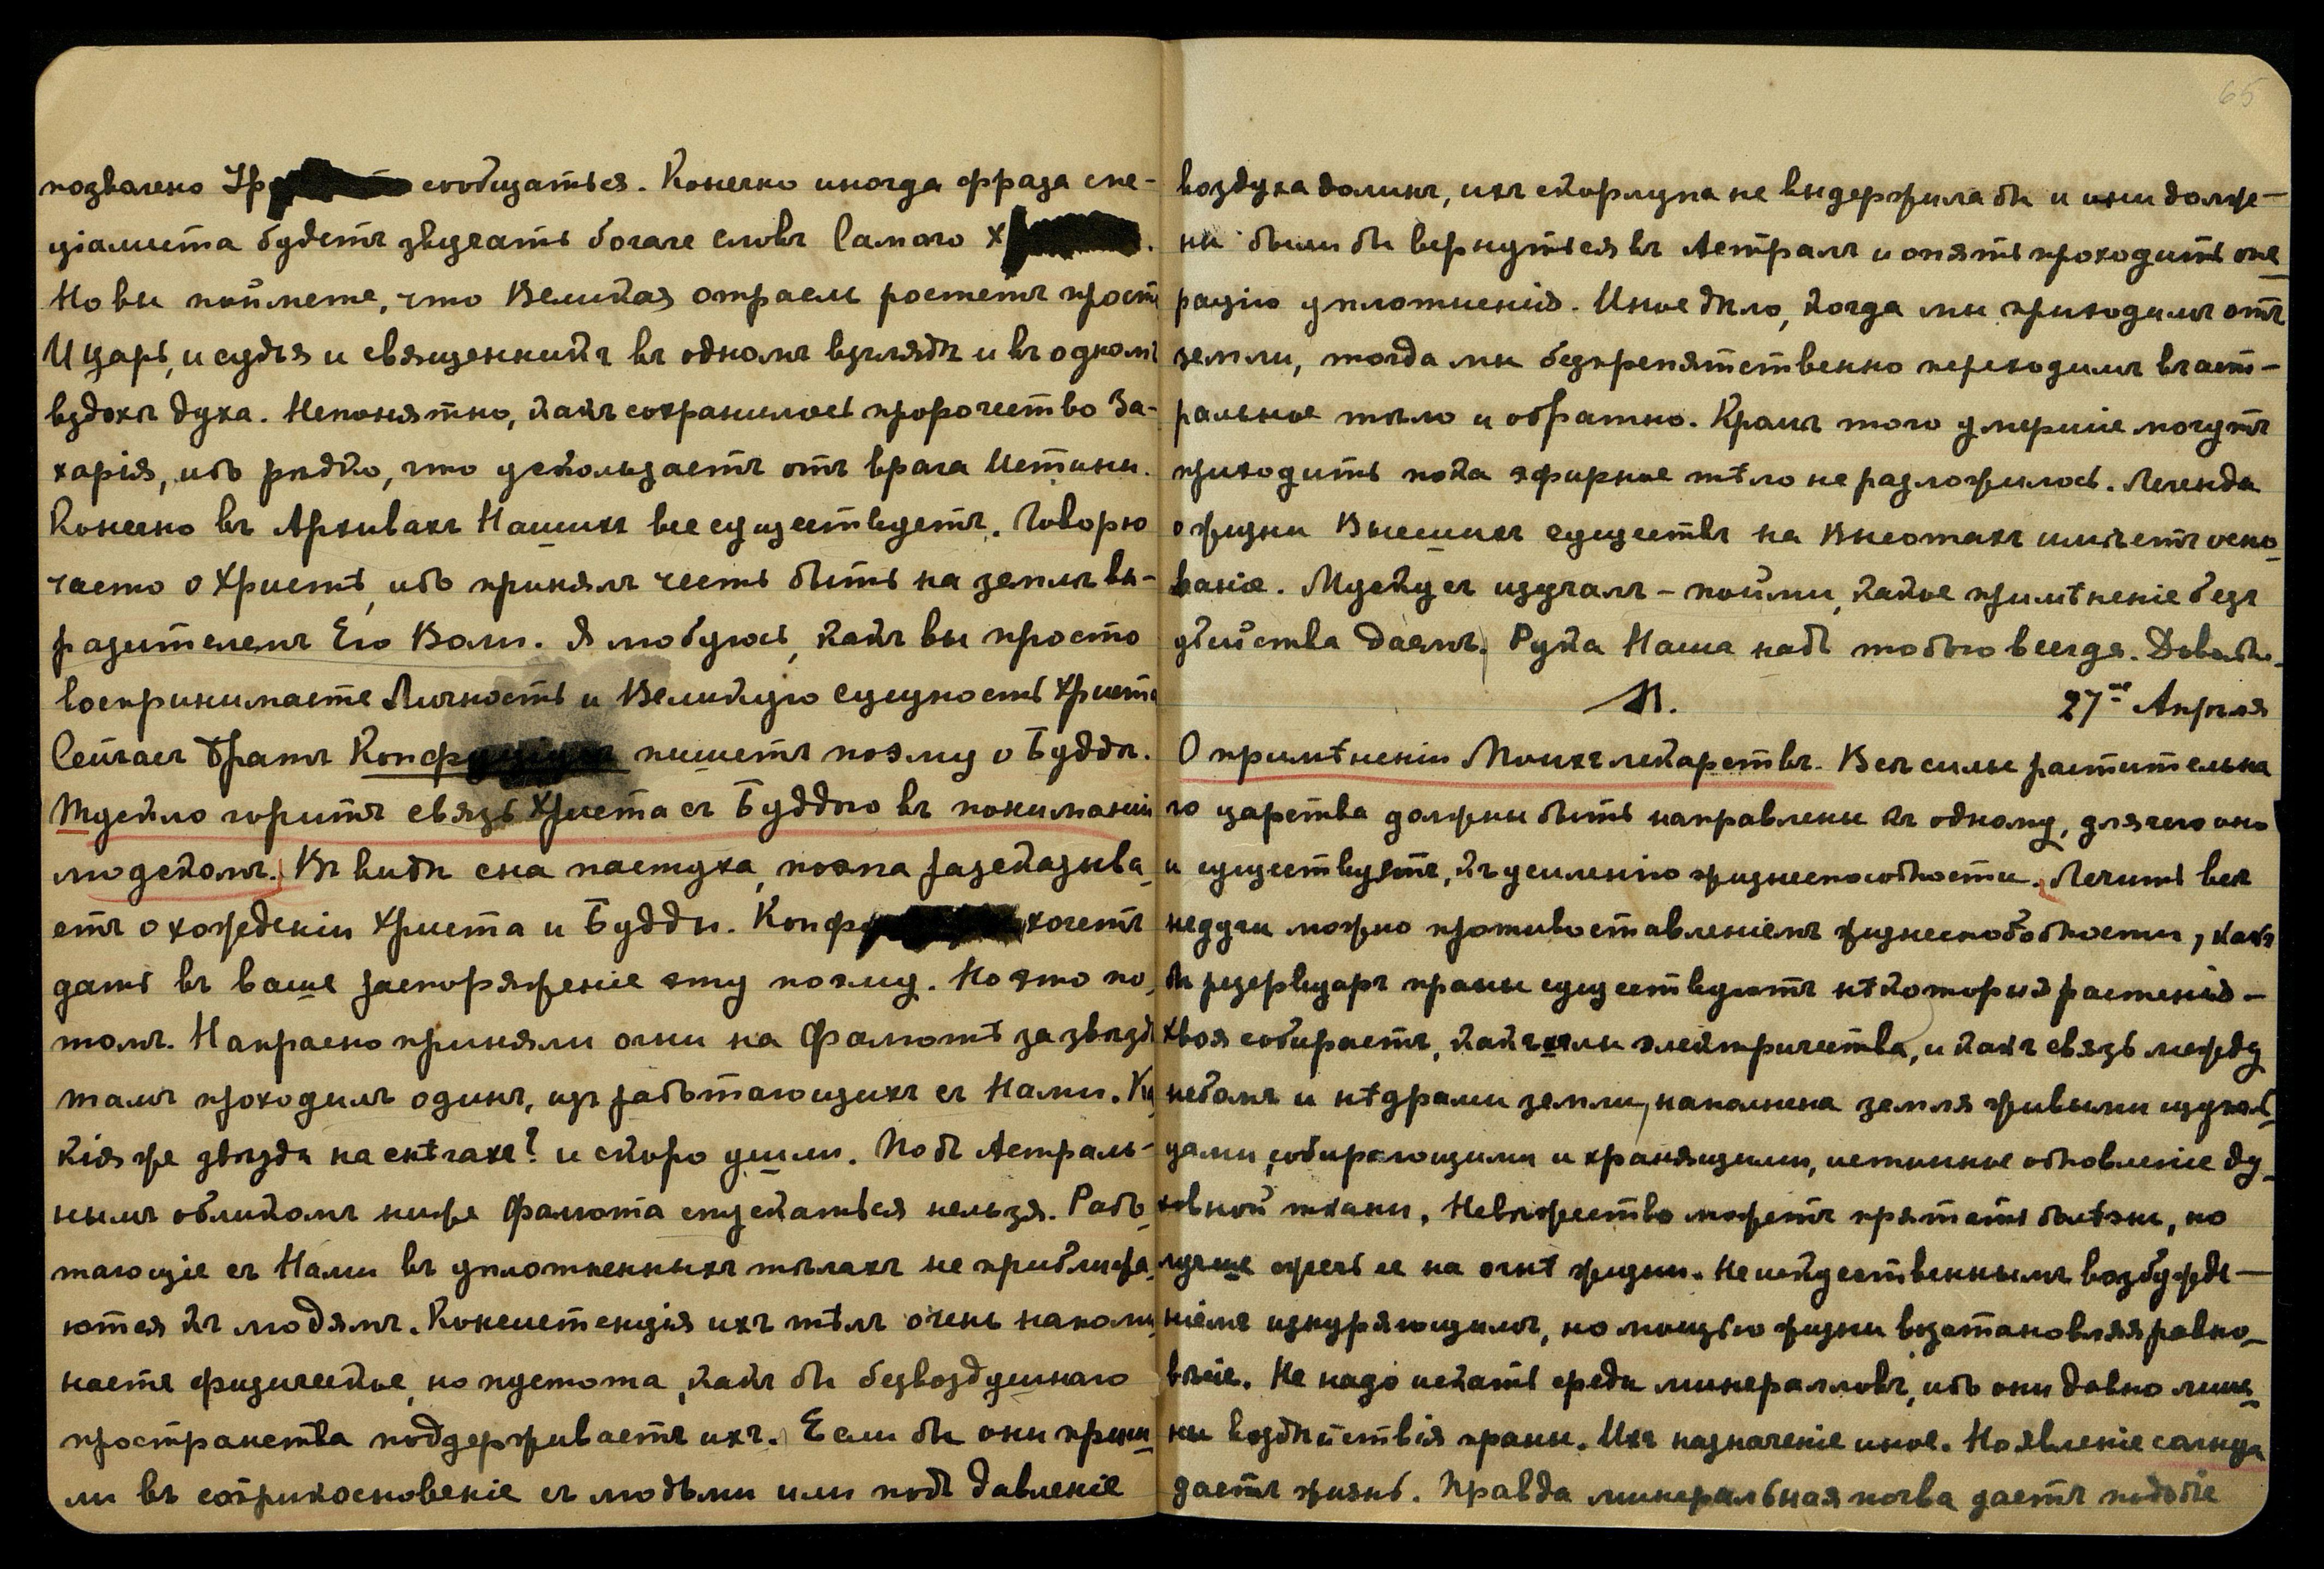 65
позволено Ур сообщаться. Конечно иногда фраза спе-
ціалиста будетъ звучать богаче словъ Самого Х .
Но вы поймете, что Великая отрасль ростетъ прост
И царь, и судья и священникъ въ одномъ взглядѣ и въ одномъ
вздохѣ духа. Непонятно, какъ сохранилось пророчество За-
харія, ибо рѣдко, что ускользаетъ отъ врага Истины.
Конечно въ Архивахъ Нашихъ все существуетъ. Говорю
часто о Христѣ, ибо принялъ честь быть на землѣ вы-
разителемъ Его Воли. Я любуюсь, какъ вы просто
воспринимаете Личность и Великую сущность Христа
Сейчасъ Братъ Конфуціусъ пишетъ поэму о Буддѣ.
Тускло горитъ связь Христа съ Буддою въ пониманіи
людскомъ. Въ видѣ сна пастуха, поэма разсказыва-
етъ о хожденіи Христа и Будды. Конфу хочетъ
дать въ ваше распоряженіе эту поэму. Но это по-
томъ. Напрасно приняли огни на Фалютѣ за звѣзды
тамъ проходилъ одинъ, изъ работающихъ съ Нами. Ка
кія же звѣзды на снѣгахъ? и скоро ушли. Подъ Астраль-
нымъ обликомъ ниже Фалюта спускаться нельзя. Рабо-
тающіе съ Нами въ уплотненныхъ тѣлахъ не приближа-
ются къ людямъ. Консистенція ихъ тѣлъ очень напоми-
наетъ физическое, но пустота, какъ бы безвоздушнаго
пространства поддерживаетъ ихъ. Если бы они приш-
ли въ соприкосновеніе съ людьми или подъ давленіе
воздуха долинъ, ихъ скорлупа не выдержила бы и они долж-
ны были бы вернуться въ Астралъ и опять проходить опе-
рацію уплотненія. Иное дѣло, когда мы приходимъ отъ
земли, тогда мы безпрепятственно переходимъ въ аст-
ральное тѣло и обратно. Кромѣ того умершіе могутъ
приходить пока эфирное тѣло не разложилось. Легенды
о жизни Высшихъ существъ на Высотахъ имѣетъ осно-
ваніе. Мускусъ изучалъ – пойми, какое примѣненіе безъ
убийства даемъ. Рука Наша надъ тобою всегда. Довольно
М. 27ое Апрѣля
О примѣненіи Моихъ лекарствъ. Всѣ силы растительна
го царства должны быть направлены къ одному, для чего оно
и существуетъ, къ усиленію жизнеспособности. Лечить всѣ
недуги можно противоставленіемъ жизнеспособности, какъ
бы резервуаръ праны существуютъ нѣкоторыя растенія –
хвоя собираетъ, какъ иглы электричества, и какъ связь между
небомъ и нѣдрами земли, наполнена земля живыми щупаль-
цами, собирающими и хранящими, истинное обновленіе ду-
ховной ткани. Невѣжество можетъ прятать болѣзнь, но
лучше сжечь ее на огнѣ жизни. Не искусственнымъ возбужде-
ніемъ изнуряющимъ, но мощью жизни возстановляя равно-
вѣсіе. Не надо искать среди минераловъ, ибо они давно лише-
ны воздѣйствія праны. Ихъ назначеніе иное. Но явленіе солнца
даетъ жизнь. Правда минеральная почва даетъ подобіе